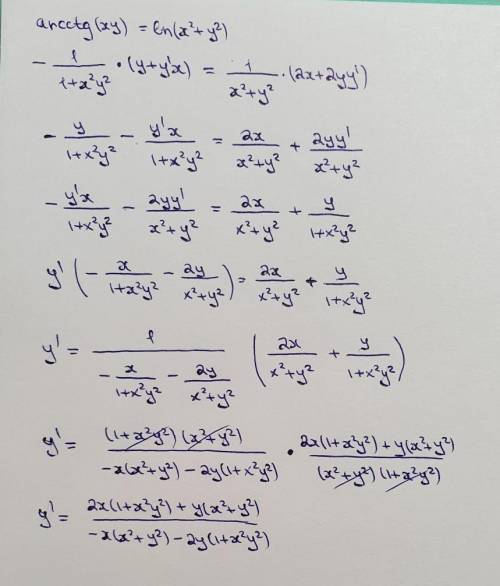 arcctg(xy) = ln(x²+y²)
- 1/(1+x²y²) · (y+y'x) = 1/(x²+y²) · (2x+2yy')
- y/(1+x²y²) - y'x/(1+x²y²) = 2x/(x²+y²) + 2yy'/(x²+y²)
- y'x/(1+x²y²) - 2yy'/(x²+y²) = 2x/(x²+y²) + y/(1+x²y²)
y' (- x/(1+x²y²) - 2y/(x²+y²)) = 2x/(x²+y²) + y/(1+x²y²)
y' = 1/(- x/(1+x²y²) - 2y/(x²+y²)) (2x/(x²+y²) + y/(1+x²y²))
y' = (1+x²y²)(x²+y²)/(-x(x²+y²) - 2y(1+x²y²)) · (2x(1+x²y²) + y(x²+y²))/((x²+y²)(1+x²y²))
y' = (2x(1+x²y²) + y(x²+y²))/(-x(x²+y²) - 2y(1+x²y²))